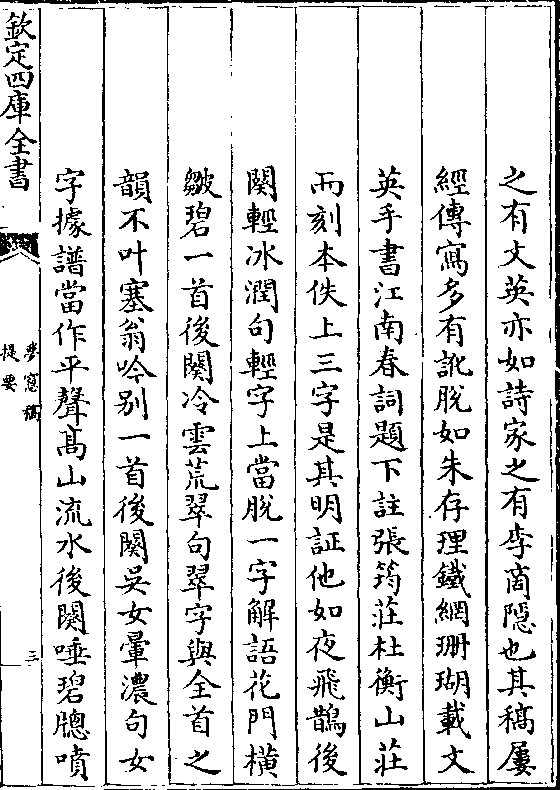 之有文英亦如詩家之有李商隱也其稿屢
經傳寫多有訛脫如朱存理鐵網珊瑚載文
英手書江南春詞題下註張筠莊杜衡山莊
而刻本佚上三字是其明証他如夜飛鵲後
闋輕冰潤句輕字上當脫一字解語花門橫
皺碧一首後闋冷雲荒翠句翠字與全首之
韻不叶塞翁吟别一首後闋吳女暈濃句女
字據譜當作平聲髙山流水後闋唾碧牕噴
欽定四庫全書
夢窻稿
提要
三